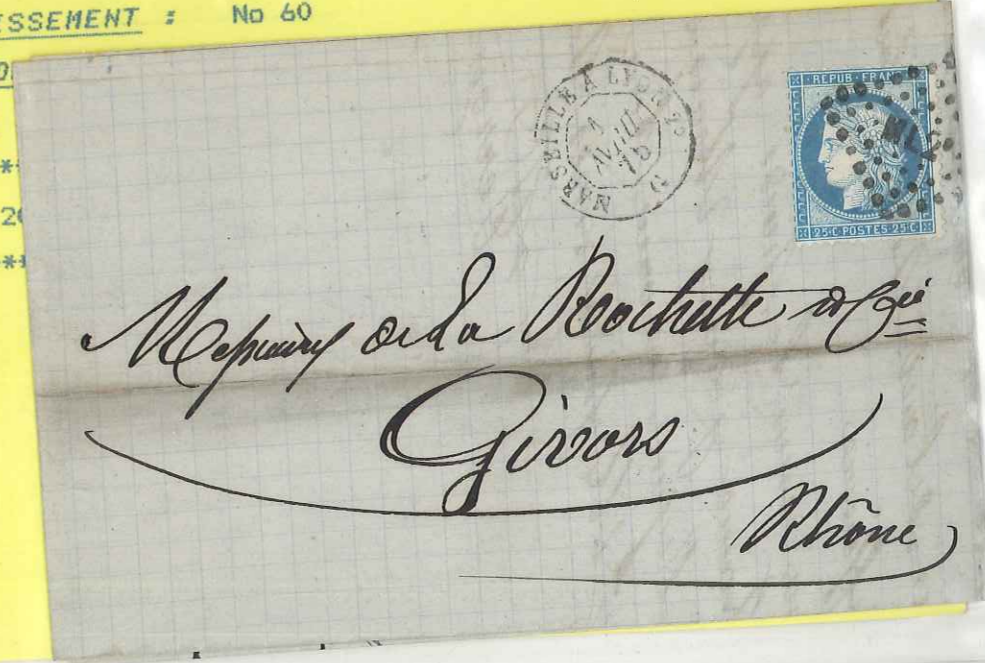 ESSEMENT : No 60
MARSEILLE À LYON 2°
1
AVRIL
75
G
REPUB. FRANC
ML2
25 C POSTES 25 C
Messieurs de la Rochette & Cie
Givors
Rhône